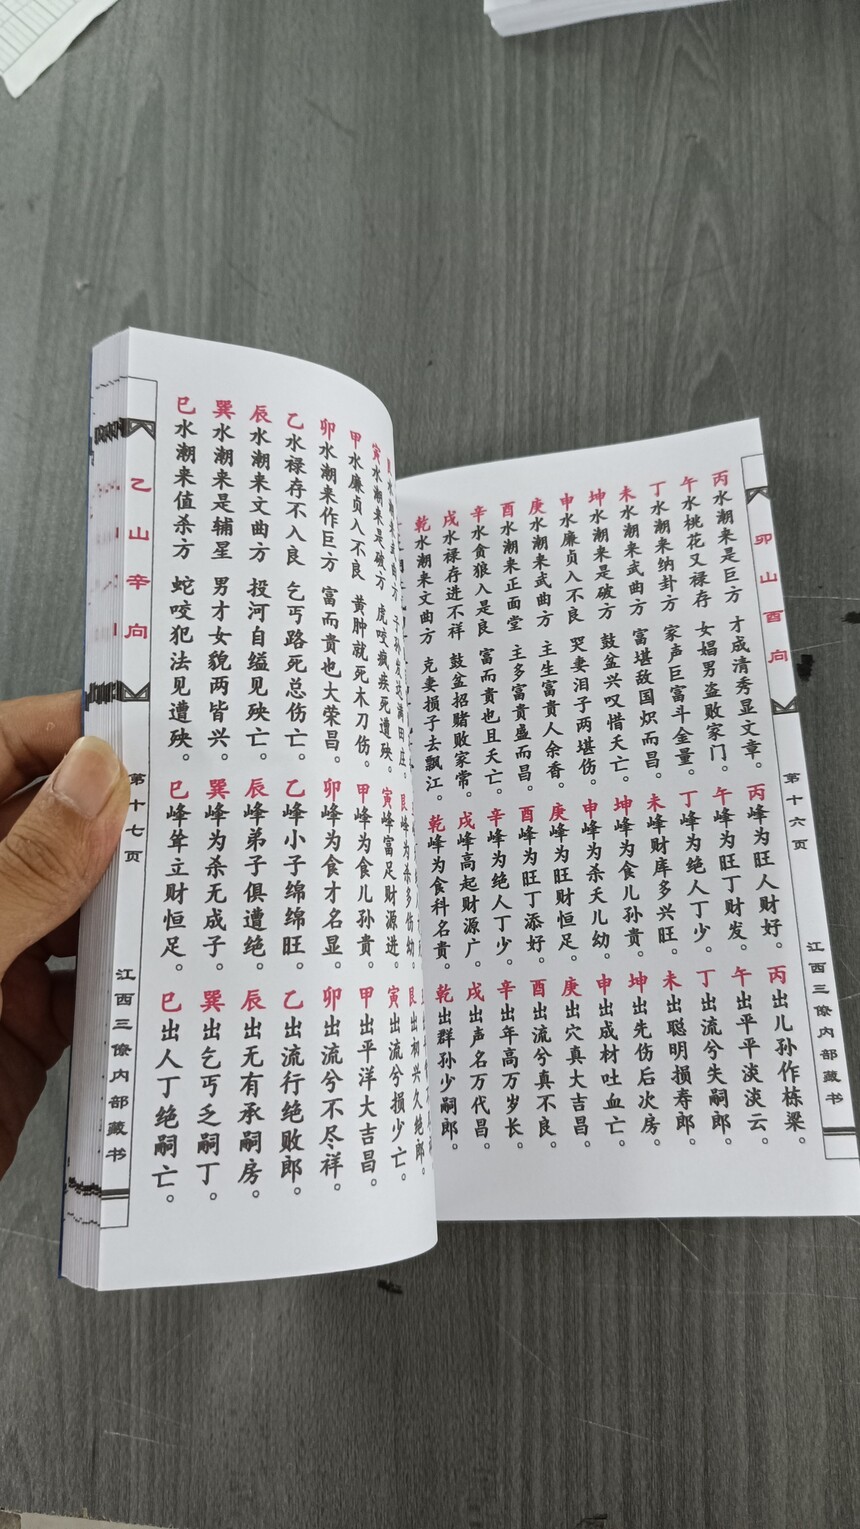 卯山酉向
第十六页
江西三僚内部藏书
丙水潮来是巨方 才成清秀显文章。 丙峰为旺人财好。 丙出儿孙作栋梁。
午水桃花又禄存 女娼男盗败家门。 午峰为旺丁财发。 午出平平淡淡云。
丁水潮来纳卦方 家声巨富斗金量。 丁峰为绝人丁少。 丁出流兮失嗣郎。
未水潮来武曲方 富堪敌国炽而昌。 未峰财库多兴旺。 未出聪明损寿郎。
坤水潮来是破方 鼓盆兴叹惜夭亡。 坤峰为食儿孙贵。 坤出先伤后次房。
申水廉贞入不良 哭妻泪子两堪伤。 申峰为杀夭儿幼。 申出成材吐血亡。
庚水潮来武曲方 主生富贵人余香。 庚峰为旺财恒足。 庚出穴真大吉昌。
酉水潮来正面堂 主多富贵盛而昌。 酉峰为旺丁添好。 酉出流兮真不良。
辛水贪狼入是良 富而贵也且夭亡。 辛峰为绝人丁少。 辛出年高万岁长。
戌水禄存进不祥 鼓盆招赌败家常。 戌峰高起财源广。 戌出声名万代昌。
乾水潮来文曲方 克妻损子去飘江。 乾峰为食科名贵。 乾出群孙少嗣郎。
寅水潮来是破方 虎咬疯疾死遭殃。 寅峰富足财源进。 寅出流兮损少亡。
甲水廉贞入不良 黄肿就死木刀伤。 甲峰为食儿孙贵。 甲出平洋大吉昌。
卯水潮来作巨方 富而贵也大荣昌。 卯峰为食才名显。 卯出流兮不尽祥。
乙水禄存不入良 乞丐路死总伤亡。 乙峰小子绵绵旺。 乙出流行绝败郎。
辰水潮来文曲方 投河自缢见殃亡。 辰峰弟子俱遭绝。 辰出无有承嗣房。
巽水潮来是辅星 男才女貌两皆兴。 巽峰为杀无成子。 巽出乞丐乏嗣丁。
巳水潮来值杀方 蛇咬犯法见遭殃。 巳峰耸立财恒足。 巳出人丁绝嗣亡。
乙山辛向
第十七页
江西三僚内部藏书